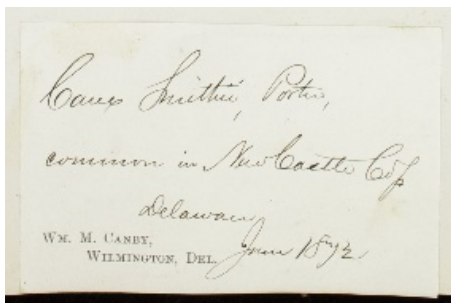 Carex Smithii, Porter,
common in New Castle Co.
Delaware,
WM. M. CANBY,
WILMINGTON, DEL. June 1872